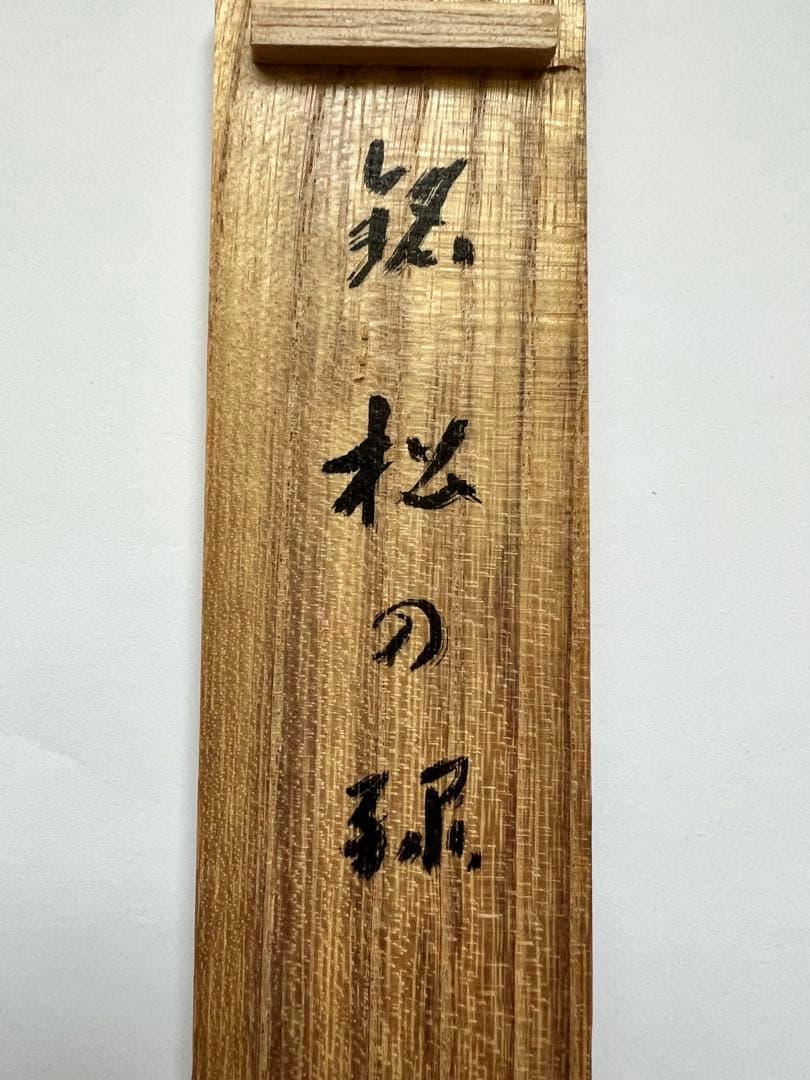 銘松の緑